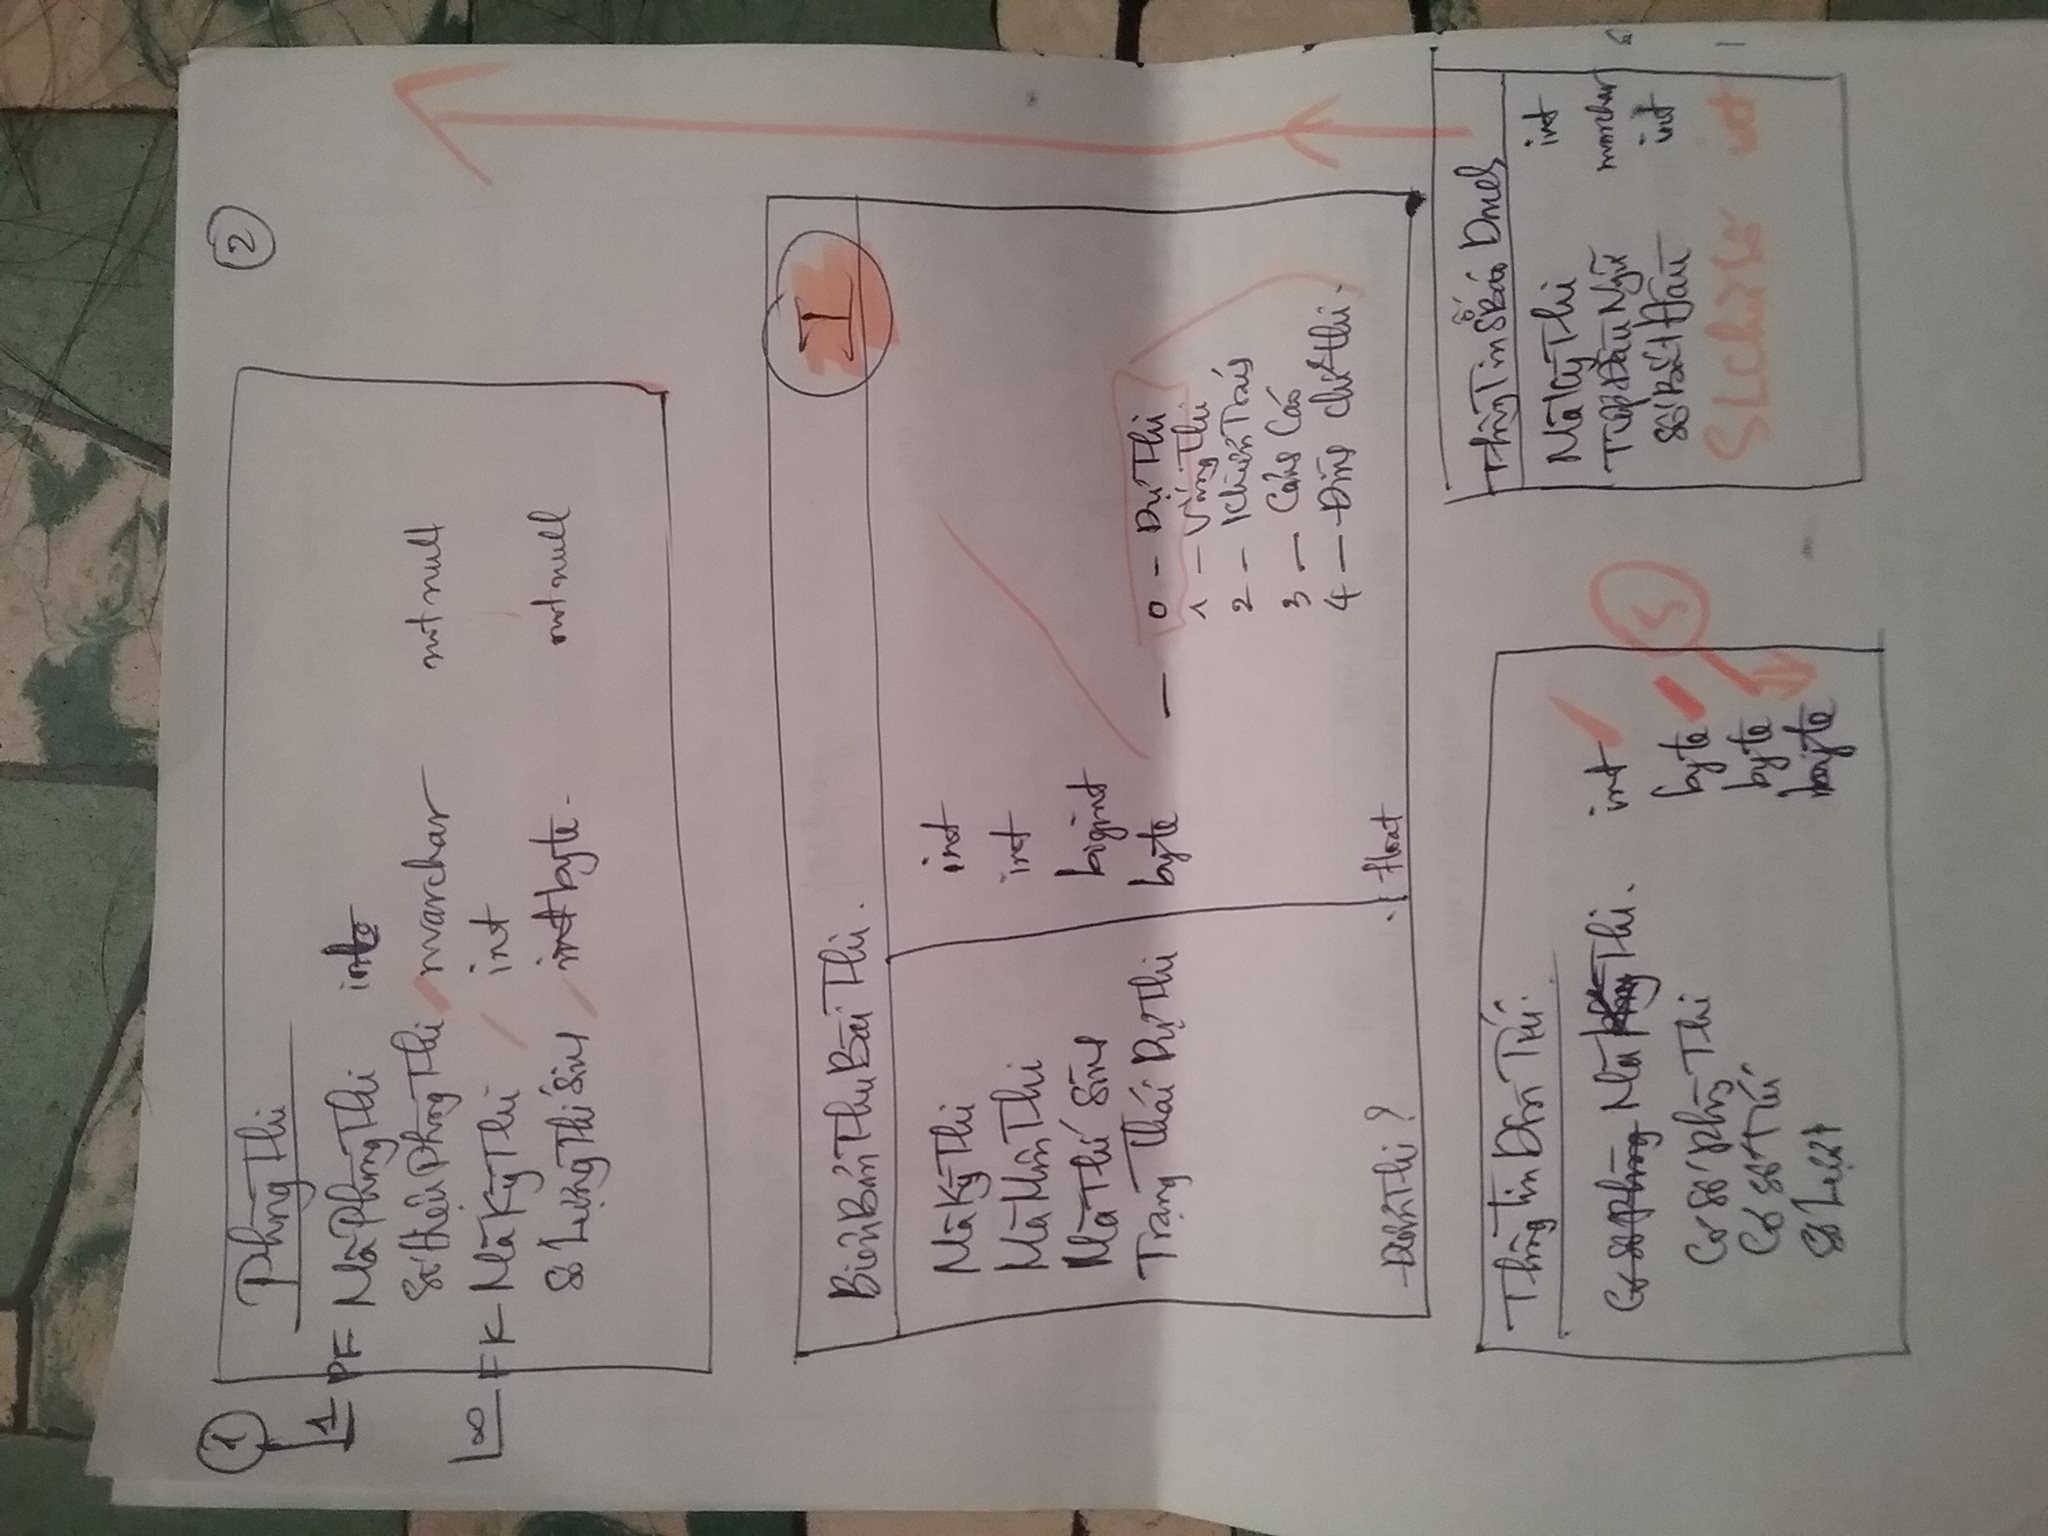 1
2
Phòng Thi
1 PF Mã Phòng Thi int
Số hiệu Phòng Thi nvarchar not null
∞ FK Mã Kỳ Thi int
Số Lượng Thí Sinh int byte not null
Biên Bản Thu Bài Thi.
I
Mã Kỳ Thi int
Mã Môn Thi int
Mã Thí Sinh bigint
Trạng Thái Dự Thi byte — 0 - Dự Thi
1 - Vắng Thi
2 - Khiển Trách
3 - Cảnh Cáo
4 - Đình chỉ thi.
Điểm Thi? float
Thông Tin Dồn Túi.
Mã Thi. int
Cơ số phòng Thi byte
Cơ số Túi byte
Số Lượt byte
5
Thông Tin Số Báo Danh
Mã Kỳ Thi int
Tiếp Đầu Ngữ nvarchar 6
Số Bắt Đầu int 1
SL Chữ Số int